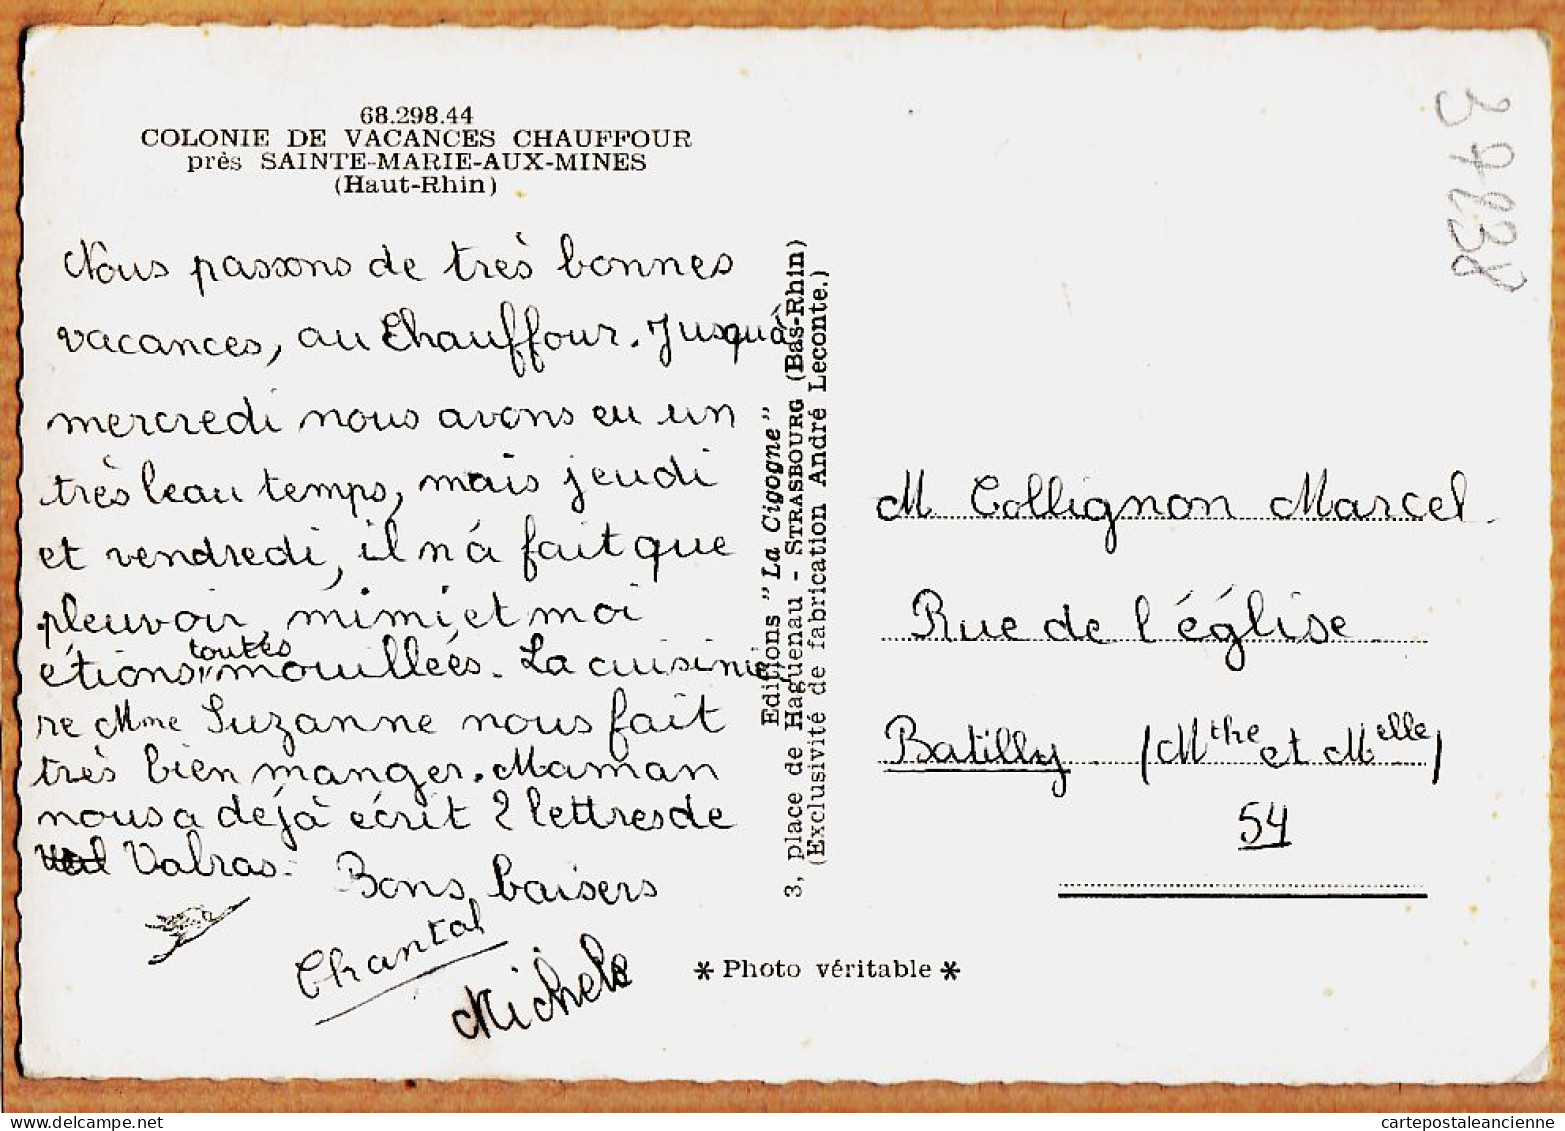 68.298.44
COLONIE DE VACANCES CHAUFFOUR
près SAINTE-MARIE-AUX-MINES
(Haut-Rhin)
Nous passons de très bonnes
vacances, au Chauffour. Jusquà
mercredi nous avons eu un
très beau temps, mais jeudi
et vendredi, il n'a fait que
pleuvoir, mimi et moi
étions toutes mouillées. La cuisiniè
re Mme Suzanne nous fait
très bien manger. Maman
nous a déjà écrit 2 lettres de
Valras.
Bons baisers
Chantal
Michele
Editions "La Cigogne"
3, place de Haguenau - STRASBOURG (Bas-Rhin)
(Exclusivité de fabrication André Leconte.)
* Photo véritable *
37838
M Collignon Marcel
Rue de l'église
Batilly (Mthe et Melle)
54
cartepostaleancienne.com